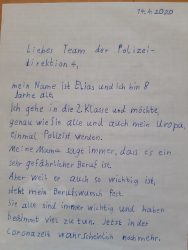 14.4.2020
Liebes Team der Polizei-
direktion 4,
mein Name ist Elias und ich bin 8
Jahre alt.
Ich gehe in die 2. Klasse und möchte,
genau wie Sie alle und auch mein Uropa,
einmal Polizist werden.
Meine Mama sagt immer, dass es ein
sehr gefährlicher Beruf ist.
Aber weil er auch so wichtig ist,
steht mein Berufswunsch fest.
Sie alle sind immer wichtig und haben
bestimmt viel zu tun. Jetzt in der
Coronazeit wahrscheinlich noch mehr.